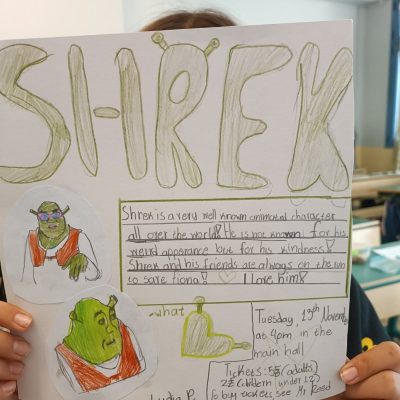 SHREK
Shrek is a very well known animated character
all over the world! He is not known for his
weird apperance but for his kindness!
Shrek and his friends are always on the run
to save fiona! I love him!
what
Tuesday, 13th Novem
at 4pm in the
main hall
Tickets: 5£ (adults)
2£ (childern under 12)
to buy tickets see Mr Reed
Lydia P.